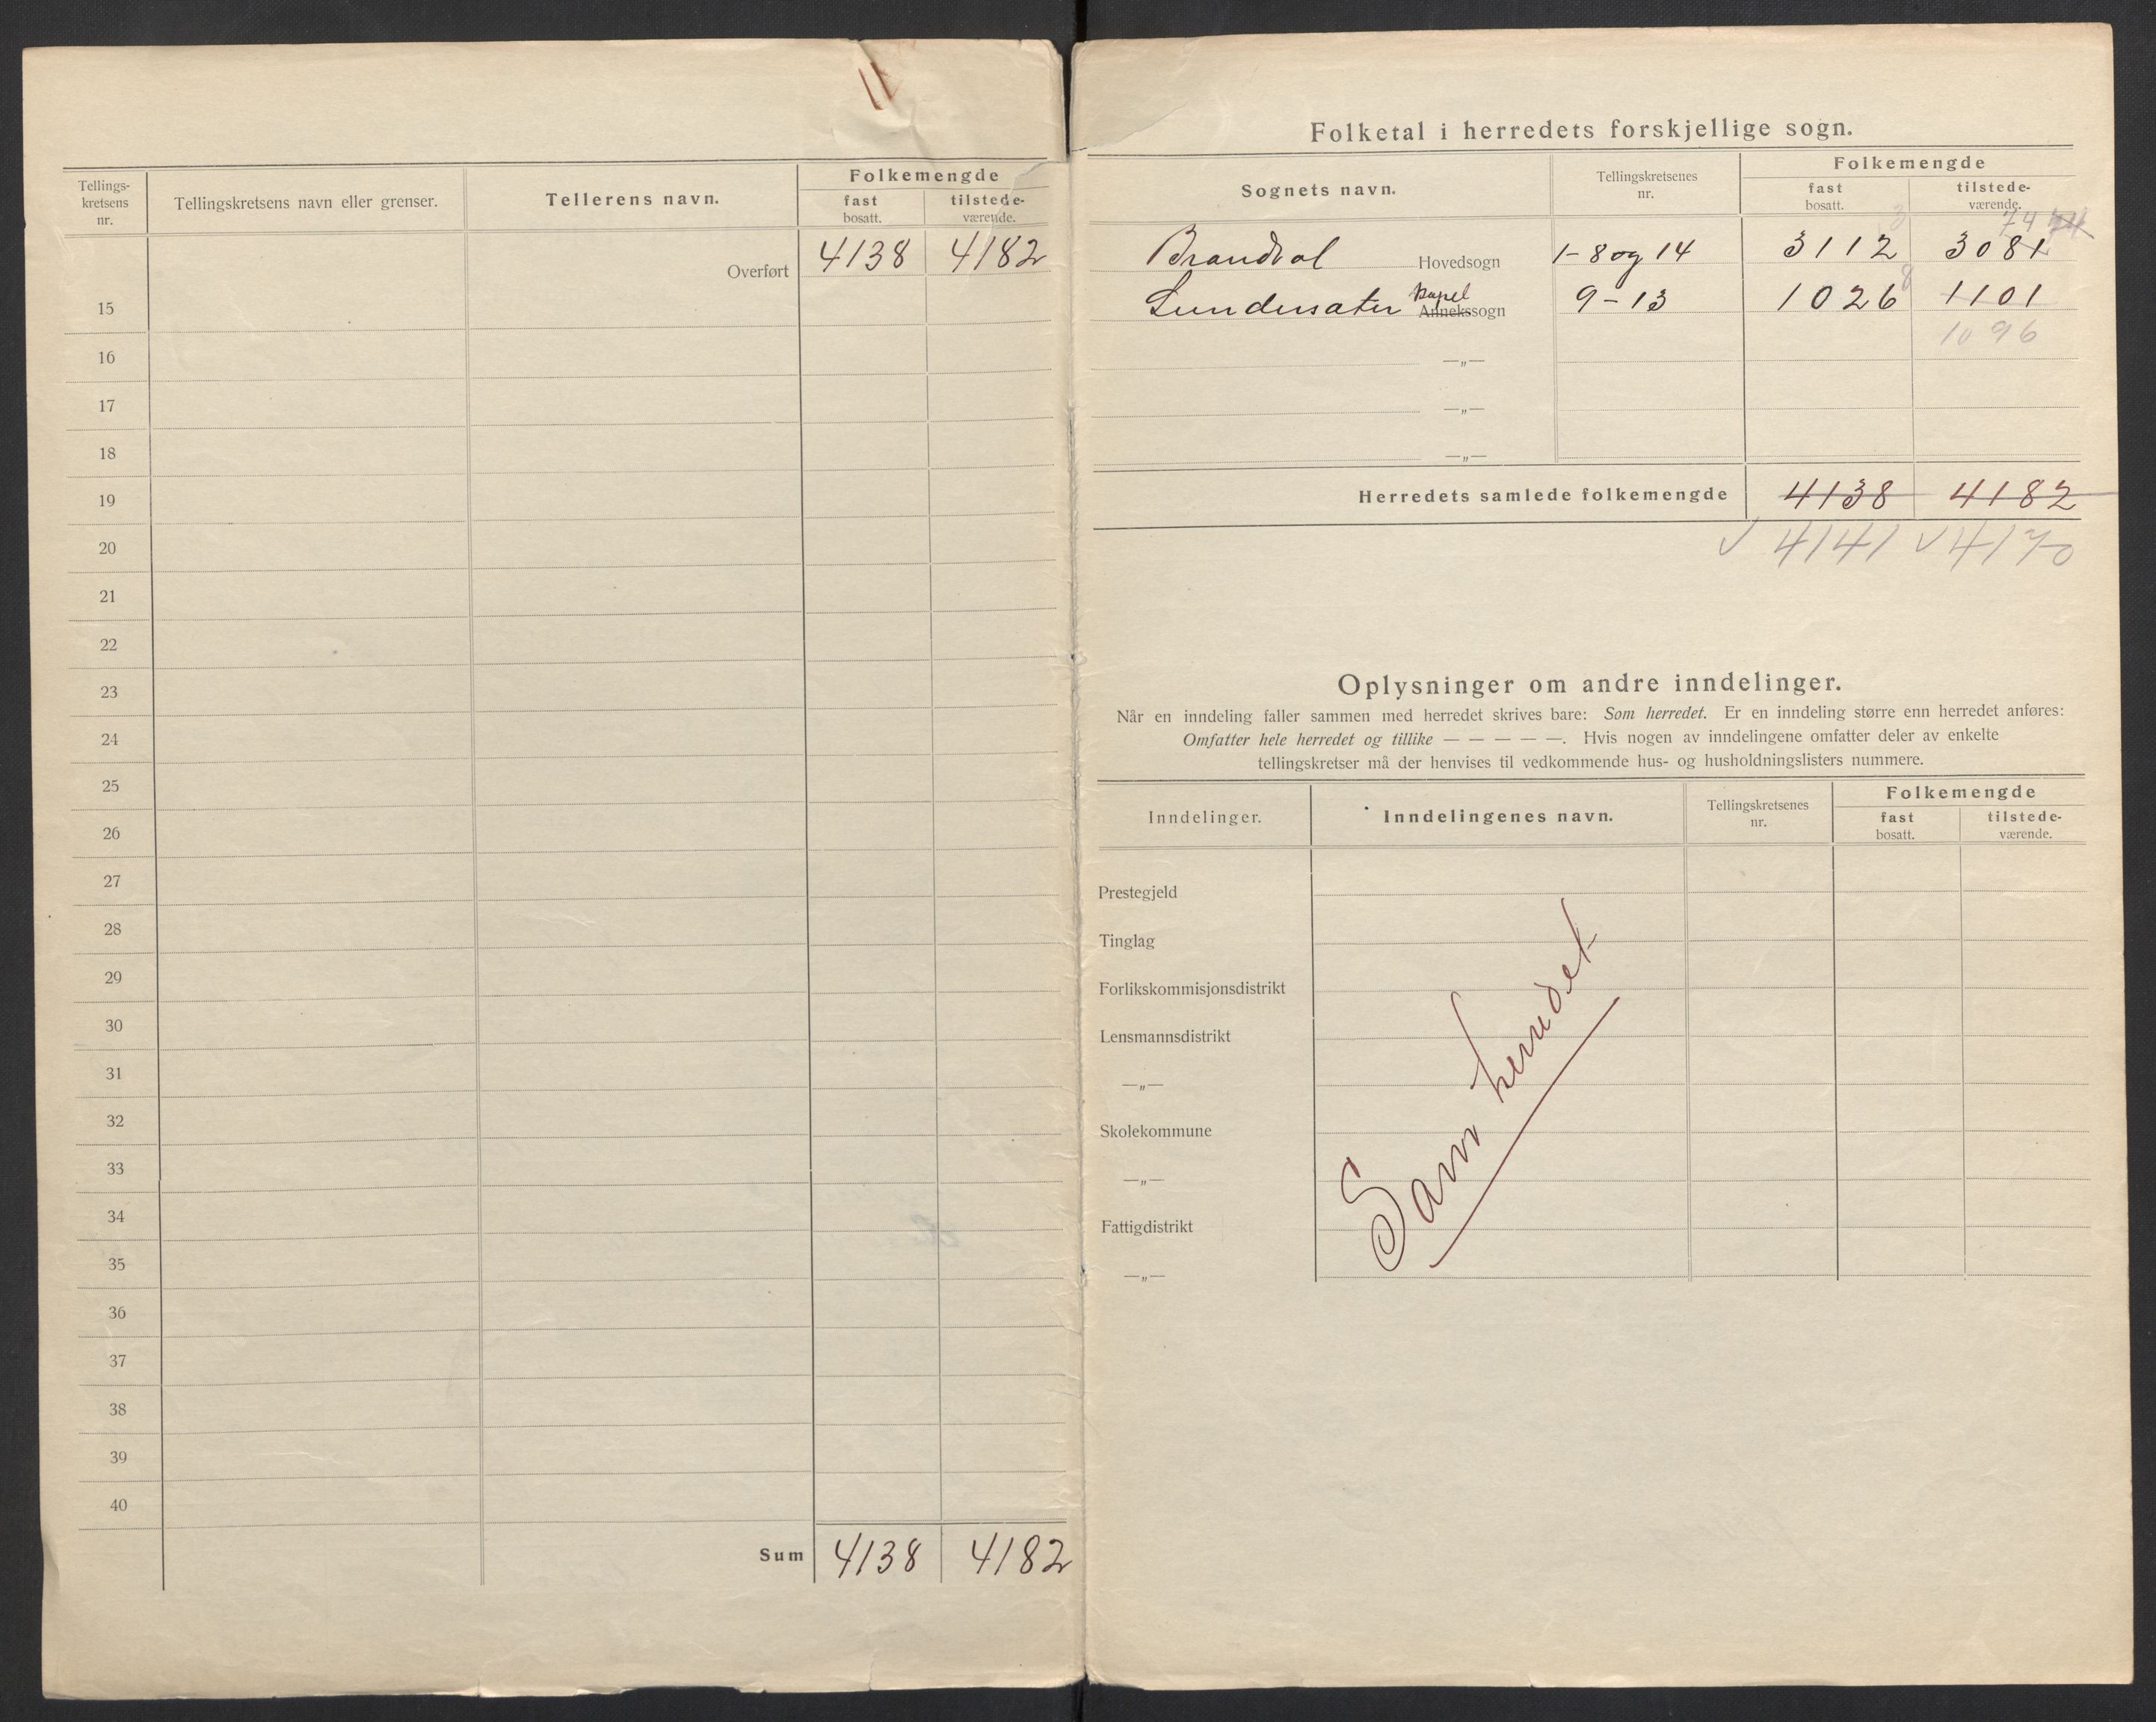 Tellings-
kretsens
nr.
Tellingskretsens navn eller grenser.
Tellerens navn.
Folkemengde
fast
bosatt.
tilstede-
værende.
Overført 4138 4182
15
16
17
18
19
20
21
22
23
24
25
26
27
28
29
30
31
32
33
34
35
36
37
38
39
40
Sum 4138 4182
Folketal i herredets forskjellige sogn.
Sognets navn.
Tellingskretsenes
nr.
Folkemengde
fast
bosatt.
tilstede-
værende.
3 74
Brandval Hovedsogn 1-8 og 14 3112 3081
kapel 8
Lundersæter Annekssogn 9-13 1026 1101
1096
—„—
—„—
—„—
Herredets samlede folkemengde 4138 4182
√ 4141 √ 4170
Oplysninger om andre inndelinger.
Når en inndeling faller sammen med herredet skrives bare: Som herredet. Er en inndeling større enn herredet anføres:
Omfatter hele herredet og tillike — — — — —. Hvis nogen av inndelingene omfatter deler av enkelte
tellingskretser må der henvises til vedkommende hus- og husholdningslisters nummere.
Inndelinger.
Inndelingenes navn.
Tellingskretsenes
nr.
Folkemengde
fast
bosatt.
tilstede-
værende.
Prestegjeld
Tinglag
Forlikskommisjonsdistrikt
Lensmannsdistrikt
—„—
Skolekommune
—„—
Fattigdistrikt
—„—
Som herredet